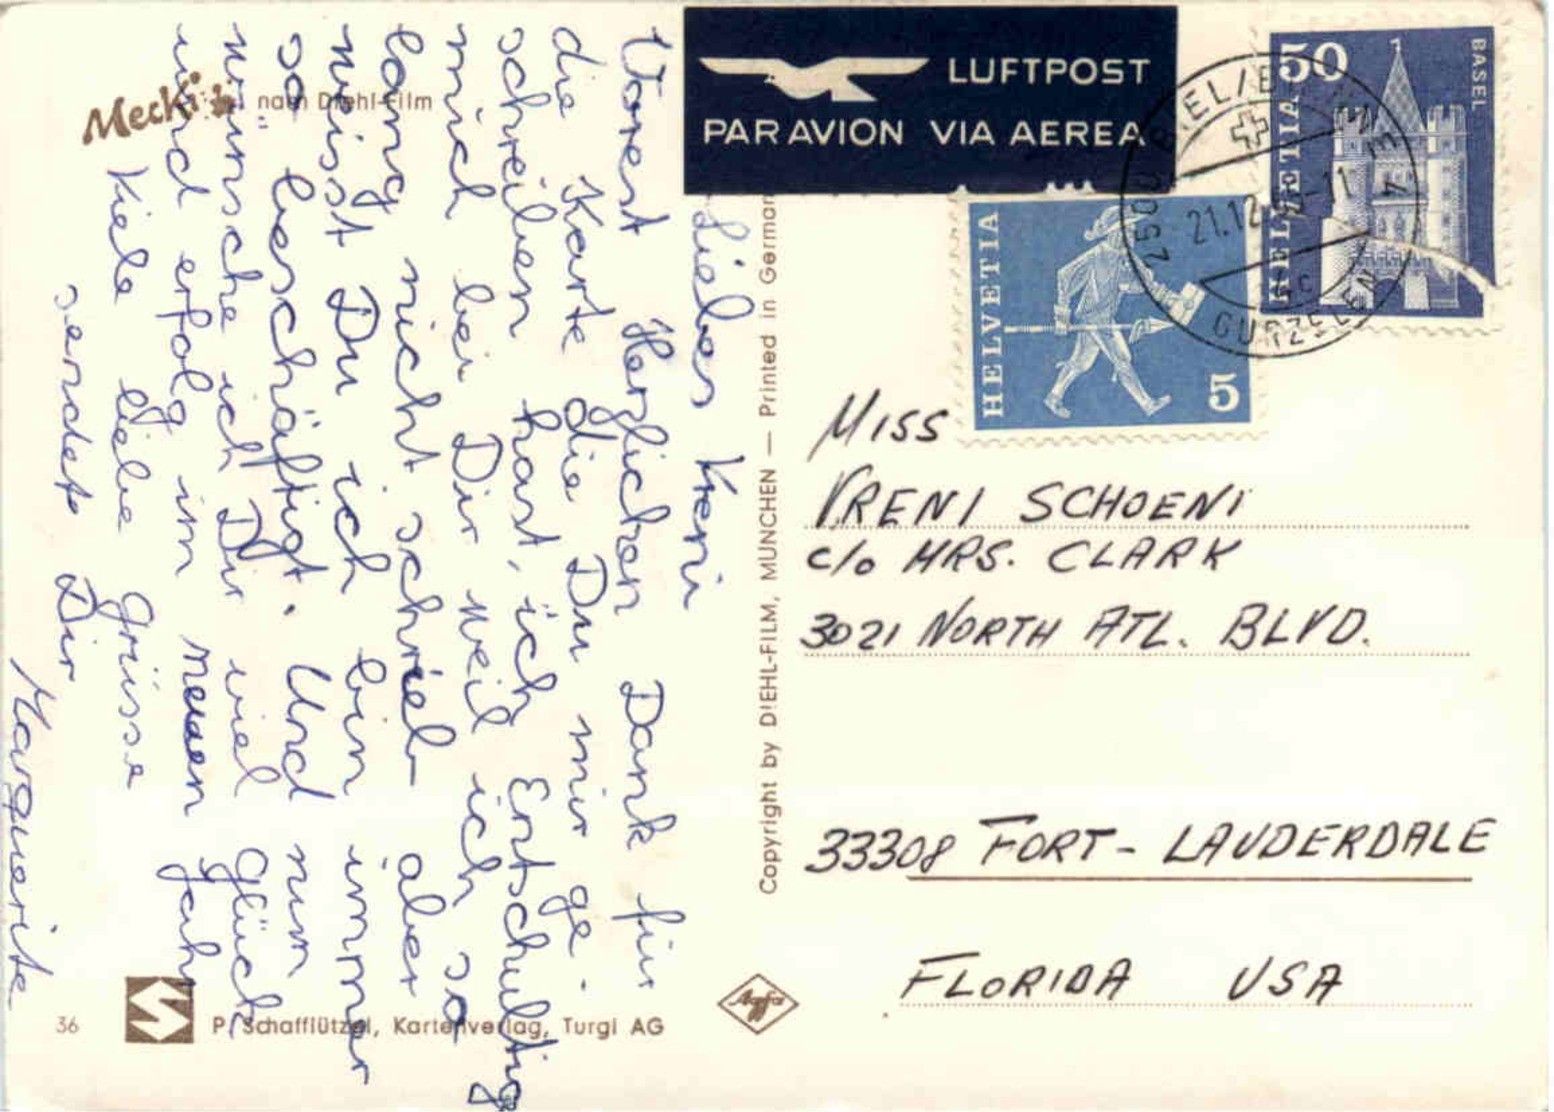 Liebes Vreni
Vorest Herzlichen Dank für
die Karte die Du mir ge-
schreiben hast, ich Entschultig
mich bei Dir weil ich so
lang nicht schrieb aber
weisst Du ich bin immer
so beschäftigt. Und nun
wünsche ich Dir viel glück
und erfolg im neuen Jahr
Viele liebe Grüsse
sendet Dir
Marguerite
Mecki
nach Diehl-Film
LUFTPOST
PAR AVION VIA AEREA
HELVETIA
5
HELVETIA
HELVETIA
50
BASEL
2500 BIEL/BIENNE 4
21.12. -11
GURZELEN
MISS
VRENI SCHOENI
c/o MRS. CLARK
3021 NORTH ATL. BLVD.
33308 FORT-LAUDERDALE
FLORIDA USA
Copyright by DIEHL-FILM, MÜNCHEN — Printed in German
36
S
P. Schafflützel, Kartenverlag, Turgi AG
Agfa